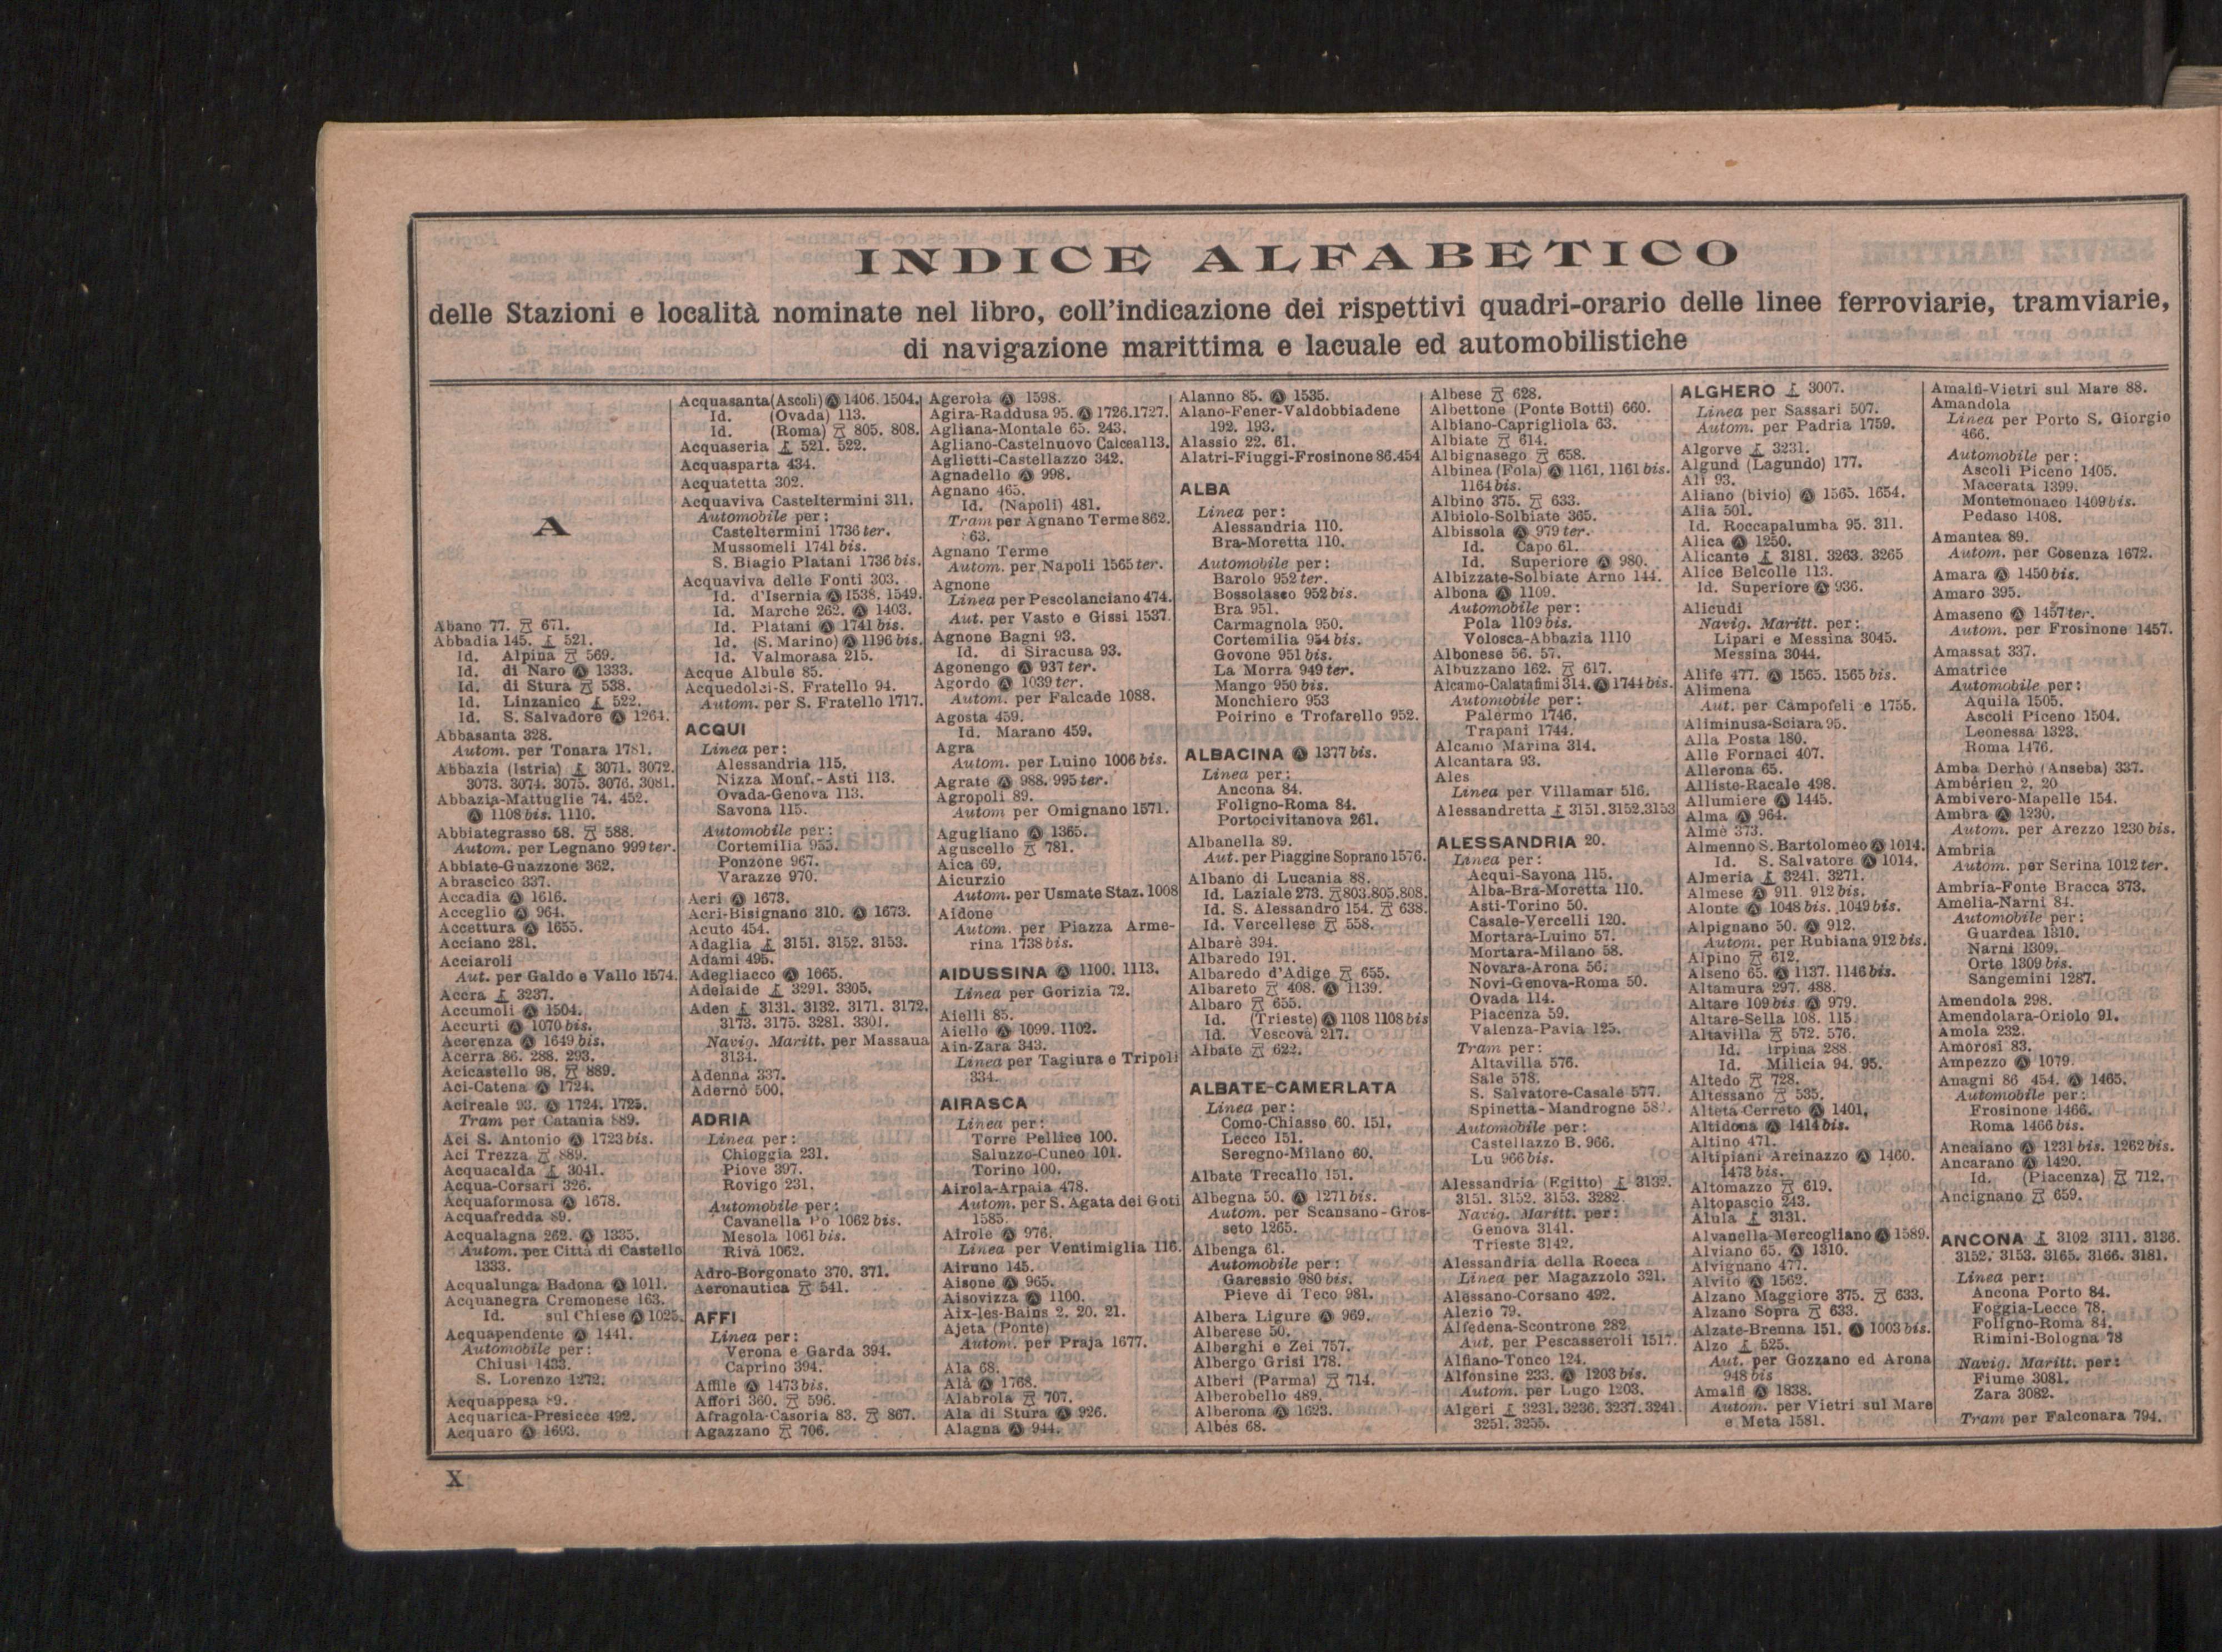 INDICE ALFABETICO
delle Stazioni e località nominate nel libro, coll'indicazione dei rispettivi quadri-orario delle linee ferroviarie, tramviarie,
di navigazione marittima e lacuale ed automobilistiche
A
Abano 77. 671.
Abbadia 145. 521.
Id. Alpina 569.
Id. di Naro Ⓐ 1333.
Id. di Stura 538.
Id. Linzanico 522.
Id. S. Salvadore Ⓐ 1264.
Abbasanta 328.
Autom. per Tonara 1781.
Abbazia (Istria) 3071. 3072.
3073. 3074. 3075. 3076. 3081.
Abbazia-Mattuglie 74. 452.
Ⓐ 1108 bis. 1110.
Abbiategrasso 58. 588.
Autom. per Legnano 999 ter.
Abbiate-Guazzone 362.
Abrascico 337.
Accadia Ⓐ 1616.
Acceglio Ⓐ 964.
Accettura Ⓐ 1655.
Acciano 281.
Acciaroli
Aut. per Galdo e Vallo 1574.
Accra 3237.
Accumoli Ⓐ 1504.
Accurti Ⓐ 1070 bis.
Acerenza Ⓐ 1649 bis.
Acerra 86. 288. 293.
Acicastello 98. 889.
Aci-Catena Ⓐ 1724.
Acireale 93. Ⓐ 1724. 1725.
Tram per Catania 889.
Aci S. Antonio Ⓐ 1723 bis.
Aci Trezza 889.
Acquacalda 3041.
Acqua-Corsari 326.
Acquaformosa Ⓐ 1678.
Acquafredda 89.
Acqualagna 262. Ⓐ 1335.
Autom. per Città di Castello
1333.
Acqualunga Badona Ⓐ 1011.
Acquanegra Cremonese 163.
Id. sul Chiese Ⓐ 1025.
Acquapendente Ⓐ 1441.
Automobile per:
Chiusi 1433.
S. Lorenzo 1272.
Acquappesa 89.
Acquarica-Presicce 492.
Acquaro Ⓐ 1693.
Acquasanta (Ascoli) Ⓐ 1406. 1504.
Id. (Ovada) 113.
Id. (Roma) 805. 808.
Acquaseria 521. 522.
Acquasparta 434.
Acquatetta 302.
Acquaviva Casteltermini 311.
Automobile per:
Casteltermini 1736 ter.
Mussomeli 1741 bis.
S. Biagio Platani 1736 bis.
Acquaviva delle Fonti 303.
Id. d'Isernia Ⓐ 1538. 1549.
Id. Marche 262. Ⓐ 1403.
Id. Platani Ⓐ 1741 bis.
Id. (S. Marino) Ⓐ 1196 bis.
Id. Valmorasa 215.
Acque Albule 85.
Acquedolci-S. Fratello 94.
Autom. per S. Fratello 1717.
ACQUI
Linea per:
Alessandria 115.
Nizza Monf.-Asti 113.
Ovada-Genova 113.
Savona 115.
Automobile per:
Cortemilia 955.
Ponzone 967.
Varazze 970.
Acri Ⓐ 1673.
Acri-Bisignano 310. Ⓐ 1673.
Acuto 454.
Adaglia 3151. 3152. 3153.
Adami 495.
Adegliacco Ⓐ 1665.
Adelaide 3291. 3305.
Aden 3131. 3132. 3171. 3172.
3173. 3175. 3281. 3301.
Navig. Maritt. per Massaua
3134.
Adenna 337.
Adernò 500.
ADRIA
Linea per:
Chioggia 231.
Piove 397.
Rovigo 231.
Automobile per:
Cavanella Po 1062 bis.
Mesola 1061 bis.
Rivà 1062.
Adro-Borgonato 370. 371.
Aeronautica 541.
AFFI
Linea per:
Verona e Garda 394.
Caprino 394.
Affile Ⓐ 1473 bis.
Affori 360. 596.
Afragola-Casoria 83. 867.
Agazzano 706.
Agerola Ⓐ 1598.
Agira-Raddusa 95. Ⓐ 1726. 1727.
Agliana-Montale 65. 243.
Agliano-Castelnuovo Calcea 113.
Aglietti-Castellazzo 342.
Agnadello Ⓐ 998.
Agnano 465.
Id. (Napoli) 481.
Tram per Agnano Terme 862.
63.
Agnano Terme
Autom. per Napoli 1565 ter.
Agnone
Linea per Pescolanciano 474.
Aut. per Vasto e Gissi 1537.
Agnone Bagni 93.
Id. di Siracusa 93.
Agonengo Ⓐ 937 ter.
Agordo Ⓐ 1039 ter.
Autom. per Falcade 1088.
Agosta 459.
Id. Marano 459.
Agra
Autom. per Luino 1006 bis.
Agrate Ⓐ 988. 995 ter.
Agropoli 89.
Autom per Omignano 1571.
Agugliano Ⓐ 1365.
Aguscello 781.
Aica 69.
Aicurzio
Autom. per Usmate Staz. 1008
Aidone
Autom. per Piazza Arme-
rina 1738 bis.
AIDUSSINA Ⓐ 1100. 1113.
Linea per Gorizia 72.
Aielli 85.
Aiello Ⓐ 1099. 1102.
Ain-Zara 343.
Linea per Tagiura e Tripoli
334.
AIRASCA
Linea per:
Torre Pellice 100.
Saluzzo-Cuneo 101.
Torino 100.
Airola-Arpaia 478.
Autom. per S. Agata dei Goti
1585.
Airole Ⓐ 976.
Linea per Ventimiglia 116.
Airuno 145.
Aisone Ⓐ 965.
Aisovizza Ⓐ 1100.
Aix-les-Bains 2. 20. 21.
Ajeta (Ponte)
Autom. per Praja 1677.
Ala 68.
Alà Ⓐ 1768.
Alabrola 707.
Ala di Stura Ⓐ 926.
Alagna Ⓐ 944.
Alanno 85. Ⓐ 1535.
Alano-Fener-Valdobbiadene
192. 193.
Alassio 22. 61.
Alatri-Fiuggi-Frosinone 86. 454
ALBA
Linea per:
Alessandria 110.
Bra-Moretta 110.
Automobile per:
Barolo 952 ter.
Bossolasco 952 bis.
Bra 951.
Carmagnola 950.
Cortemilia 954 bis.
Govone 951 bis.
La Morra 949 ter.
Mango 950 bis.
Monchiero 953
Poirino e Trofarello 952.
ALBACINA Ⓐ 1377 bis.
Linea per:
Ancona 84.
Foligno-Roma 84.
Portocivitanova 261.
Albanella 89.
Aut. per Piaggine Soprano 1576.
Albano di Lucania 88.
Id. Laziale 273. 803. 805. 808.
Id. S. Alessandro 154. 638.
Id. Vercellese 558.
Albarè 394.
Albaredo 191.
Albaredo d'Adige 655.
Albareto 408. Ⓐ 1139.
Albaro 655.
Id. (Trieste) Ⓐ 1108 1108 bis
Id. Vescovà 217.
Albate 622.
ALBATE-CAMERLATA
Linea per:
Como-Chiasso 60. 151.
Lecco 151.
Seregno-Milano 60.
Albate Trecallo 151.
Albegna 50. Ⓐ 1271 bis.
Autom. per Scansano-Gros-
seto 1265.
Albenga 61.
Automobile per:
Garessio 980 bis.
Pieve di Teco 981.
Albera Ligure Ⓐ 969.
Alberese 50.
Alberghi e Zei 757.
Albergo Grisi 178.
Alberi (Parma) 714.
Alberobello 489.
Alberona Ⓐ 1623.
Albes 68.
Albese 628.
Albettone (Ponte Botti) 660.
Albiano-Caprigliola 63.
Albiate 614.
Albignasego 658.
Albinea (Fola) Ⓐ 1161. 1161 bis.
1164 bis.
Albino 375. 633.
Albiolo-Solbiate 365.
Albissola Ⓐ 979 ter.
Id. Capo 61.
Id. Superiore Ⓐ 980.
Albizzate-Solbiate Arno 144.
Albona Ⓐ 1109.
Automobile per:
Pola 1109 bis.
Volosca-Abbazia 1110
Albonese 56. 57.
Albuzzano 162. 617.
Alcamo-Calatafimi 314. Ⓐ 1744 bis.
Automobile per:
Palermo 1746.
Trapani 1744.
Alcamo Marina 314.
Alcantara 93.
Ales
Linea per Villamar 516.
Alessandretta 3151. 3152. 3153
ALESSANDRIA 20.
Linea per:
Acqui-Savona 115.
Alba-Bra-Moretta 110.
Asti-Torino 50.
Casale-Vercelli 120.
Mortara-Luino 57.
Mortara-Milano 58.
Novara-Arona 56.
Novi-Genova-Roma 50.
Ovada 114.
Piacenza 59.
Valenza-Pavia 125.
Tram per:
Altavilla 576.
Sale 578.
S. Salvatore-Casale 577.
Spinetta-Mandrogne
Automobile per:
Castellazzo B. 966.
Lu 966 bis.
Alessandria (Egitto) 3132.
3151. 3152. 3153. 3282.
Navig. Maritt. per:
Genova 3141.
Trieste 3142.
Alessandria della Rocca
Linea per Magazzolo 321.
Alessano-Corsano 492.
Alezio 79.
Alfedena-Scontrone 282
Aut. per Pescasseroli 1517.
Alfiano-Tonco 124.
Alfonsine 233. Ⓐ 1203 bis.
Autom. per Lugo 1203.
Algeri 3231. 3236. 3237. 3241
3251. 3255.
ALGHERO 3007.
Linea per Sassari 507.
Autom. per Padria 1759.
Algorve 3231.
Algund (Lagundo) 177.
Alì 93.
Aliano (bivio) Ⓐ 1565. 1654.
Alia 501.
Id. Roccapalumba 95. 311.
Alica Ⓐ 1250.
Alicante 3181. 3263. 3265
Alice Belcolle 113.
Id. Superiore Ⓐ 936.
Alicudi
Navig. Maritt. per:
Lipari e Messina 3045.
Messina 3044.
Alife 477. Ⓐ 1565. 1565 bis.
Alimena
Aut. per Campofeli e 1755.
Aliminusa-Sciara 95.
Alla Posta 180.
Alle Fornaci 407.
Allerona 65.
Alliste-Racale 498.
Allumiere Ⓐ 1445.
Alma Ⓐ 964.
Almè 373.
Almenno S. Bartolomeo Ⓐ 1014.
Id. S. Salvatore Ⓐ 1014.
Almeria 3241. 3271.
Almese Ⓐ 911. 912 bis.
Alonte Ⓐ 1048 bis. 1049 bis.
Alpignano 50. Ⓐ 912.
Autom. per Rubiana 912 bis.
Alpino 612.
Alseno 65. Ⓐ 1137. 1146 bis.
Altamura 297. 488.
Altare 109 bis Ⓐ 979.
Altare-Sella 108. 115.
Altavilla 572. 576.
Id. Irpina 288
Id. Milicia 94. 95.
Altedo 728.
Altessano 535.
Alteta Cerreto Ⓐ 1401.
Altidona Ⓐ 1414 bis.
Altino 471.
Altipiani Arcinazzo Ⓐ 1460.
1473 bis.
Altomazzo 619.
Altopascio 243.
Alula 3131.
Alvanella-Mercogliano Ⓐ 1589.
Alviano 65. Ⓐ 1310.
Alvignano 477.
Alvito Ⓐ 1562.
Alzano Maggiore 375. 633.
Alzano Sopra 633.
Alzate-Brenna 151. Ⓐ 1003 bis.
Alzo 525.
Aut. per Gozzano ed Arona
948 bis
Amalfi Ⓐ 1838.
Autom. per Vietri sul Mare
e Meta 1581.
Amalfi-Vietri sul Mare 88.
Amandola
Linea per Porto S. Giorgio
466.
Automobile per:
Ascoli Piceno 1405.
Macerata 1399.
Montemonaco 1409 bis.
Pedaso 1408.
Amantea 89.
Autom. per Cosenza 1672.
Amara Ⓐ 1450 bis.
Amaro 395.
Amaseno Ⓐ 1457 ter.
Autom. per Frosinone 1457.
Amassat 337.
Amatrice
Automobile per:
Aquila 1505.
Ascoli Piceno 1504.
Leonessa 1323.
Roma 1476.
Amba Derhò (Anseba) 337.
Ambérieu 2. 20
Ambivero-Mapelle 154.
Ambra Ⓐ 1230.
Autom. per Arezzo 1230 bis.
Ambria
Autom. per Serina 1012 ter.
Ambria-Fonte Bracca 373.
Amelia-Narni 84.
Automobile per:
Guardea 1310.
Narni 1309.
Orte 1309 bis.
Sangemini 1287.
Amendola 298.
Amendolara-Oriolo 91.
Amola 232.
Amorosi 83.
Ampezzo Ⓐ 1079.
Anagni 86 454. Ⓐ 1465.
Automobile per:
Frosinone 1466.
Roma 1466 bis.
Ancaiano Ⓐ 1231 bis. 1262 bis.
Ancarano Ⓐ 1420.
Id. (Piacenza) 712.
Ancignano 659.
ANCONA 3102 3111. 3136.
3152. 3153. 3165. 3166. 3181.
Linea per:
Ancona Porto 84.
Foggia-Lecce 78.
Foligno-Roma 84.
Rimini-Bologna 78
Navig. Maritt. per:
Fiume 3081.
Zara 3082.
Tram per Falconara 794.
X